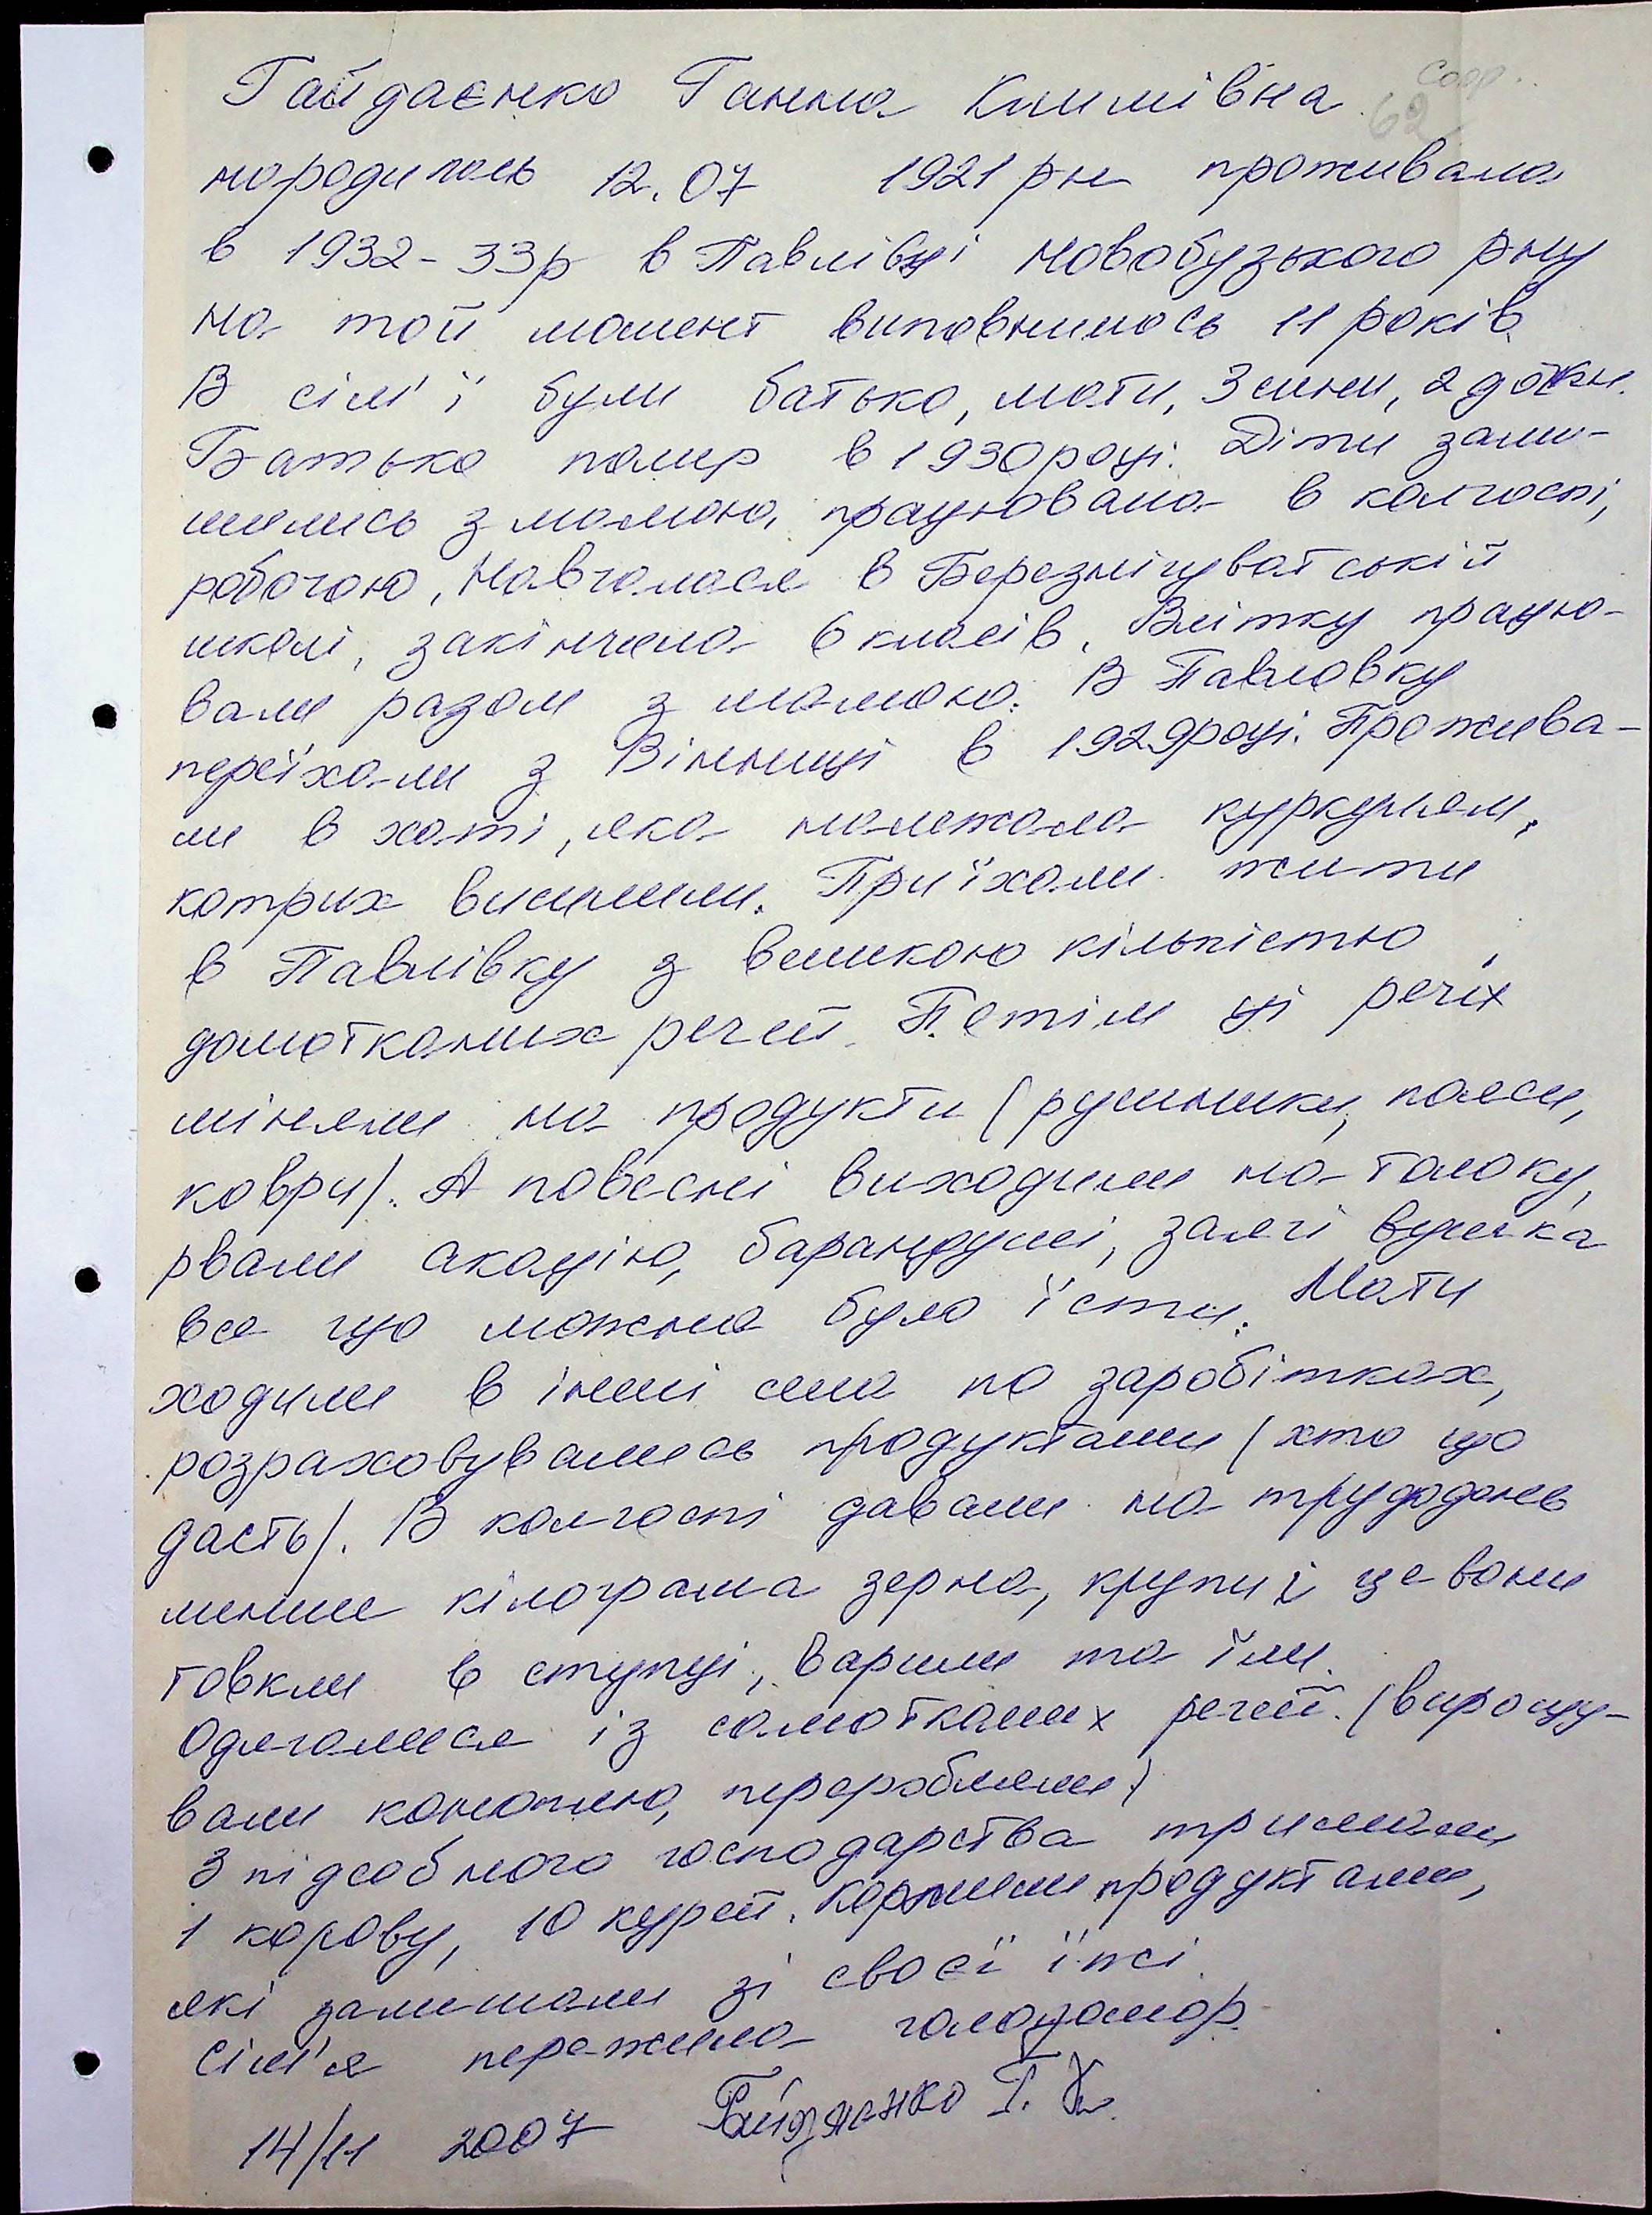 Гайдаєнко Ганна Климівна
62
народилась 12.07 1921 рн проживала
в 1932-33р в Павлівці Новобузького рну
на той момент виповнилось 11 років
В сім'ї були батько, мати, 3 сини, 2 дочки.
Батько помер в 1930 році. Діти зали-
шились з мамою, працювала в колгоспі,
робочою, навчалася в Березнігуватській
школі, закінчила 6 класів. Влітку працю-
вали разом з мамою. В Павловку
переїхали з Вінниці в 1929 році. Прожива-
ли в хаті, яка належала куркулям,
котрих висилили. Приїхали жити
в Павлівку з великою кількістю
домотканих речей. Потім ці речіх
міняли на продукти (рушники, пояси,
коври). А повесні виходили на толоку,
рвали акацію, барандулі, заячі вушка
все що можна було їсти. Мати
ходили в інші села по заробітках,
розраховувались продуктами (хто що
дасть). В колгоспі давали на трудодень
менше кілограма зерна, крупи і це вони
товкли в ступці, варили та їли.
Одягалися із самотканих речей. (вирощу-
вали коноплю, переробляли)
З підсобного господарства тримали
1 корову, 10 курей. Кормили продуктами,
які залишали зі своєї їжі.
Сім'я пережила голодомор.
14/11 2007 Гайдаенко Г. К.